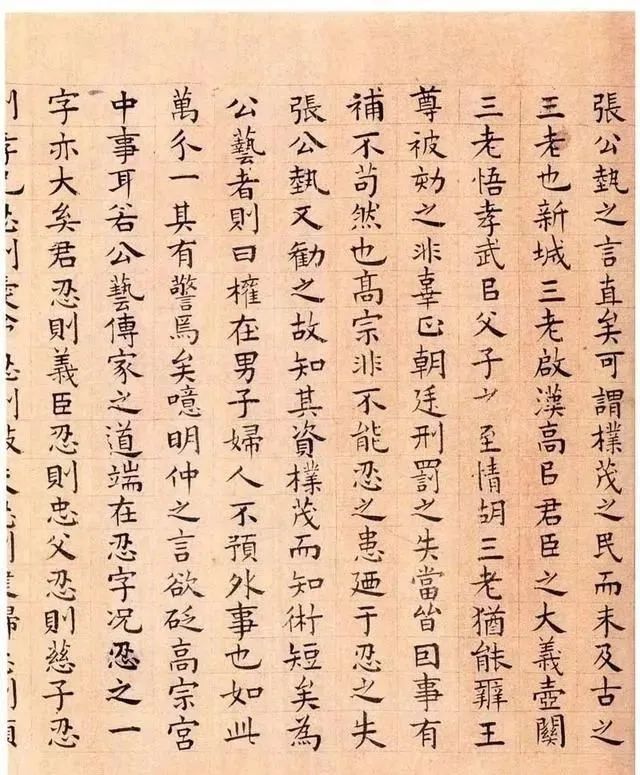 張公埶之言直矣可謂樸茂之民而未及古之
三老也新城三老啟漢高㠯君臣之大義壺關
三老悟孝武㠯父子㞢至情胡三老猶能辭王
尊被劾之非辜正朝廷刑罰之失當皆因事有
補不苟然也髙宗非不能忍之患廼于忍之失
張公埶又勸之故知其資樸茂而知術短矣為
公藝者則曰權在男子婦人不預外事也如此
萬分一其有警焉矣噫明仲之言欲砭高宗宮
中事耳若公藝傳家之道端在忍字況忍之一
字亦大矣君忍則義臣忍則忠父忍則慈子忍